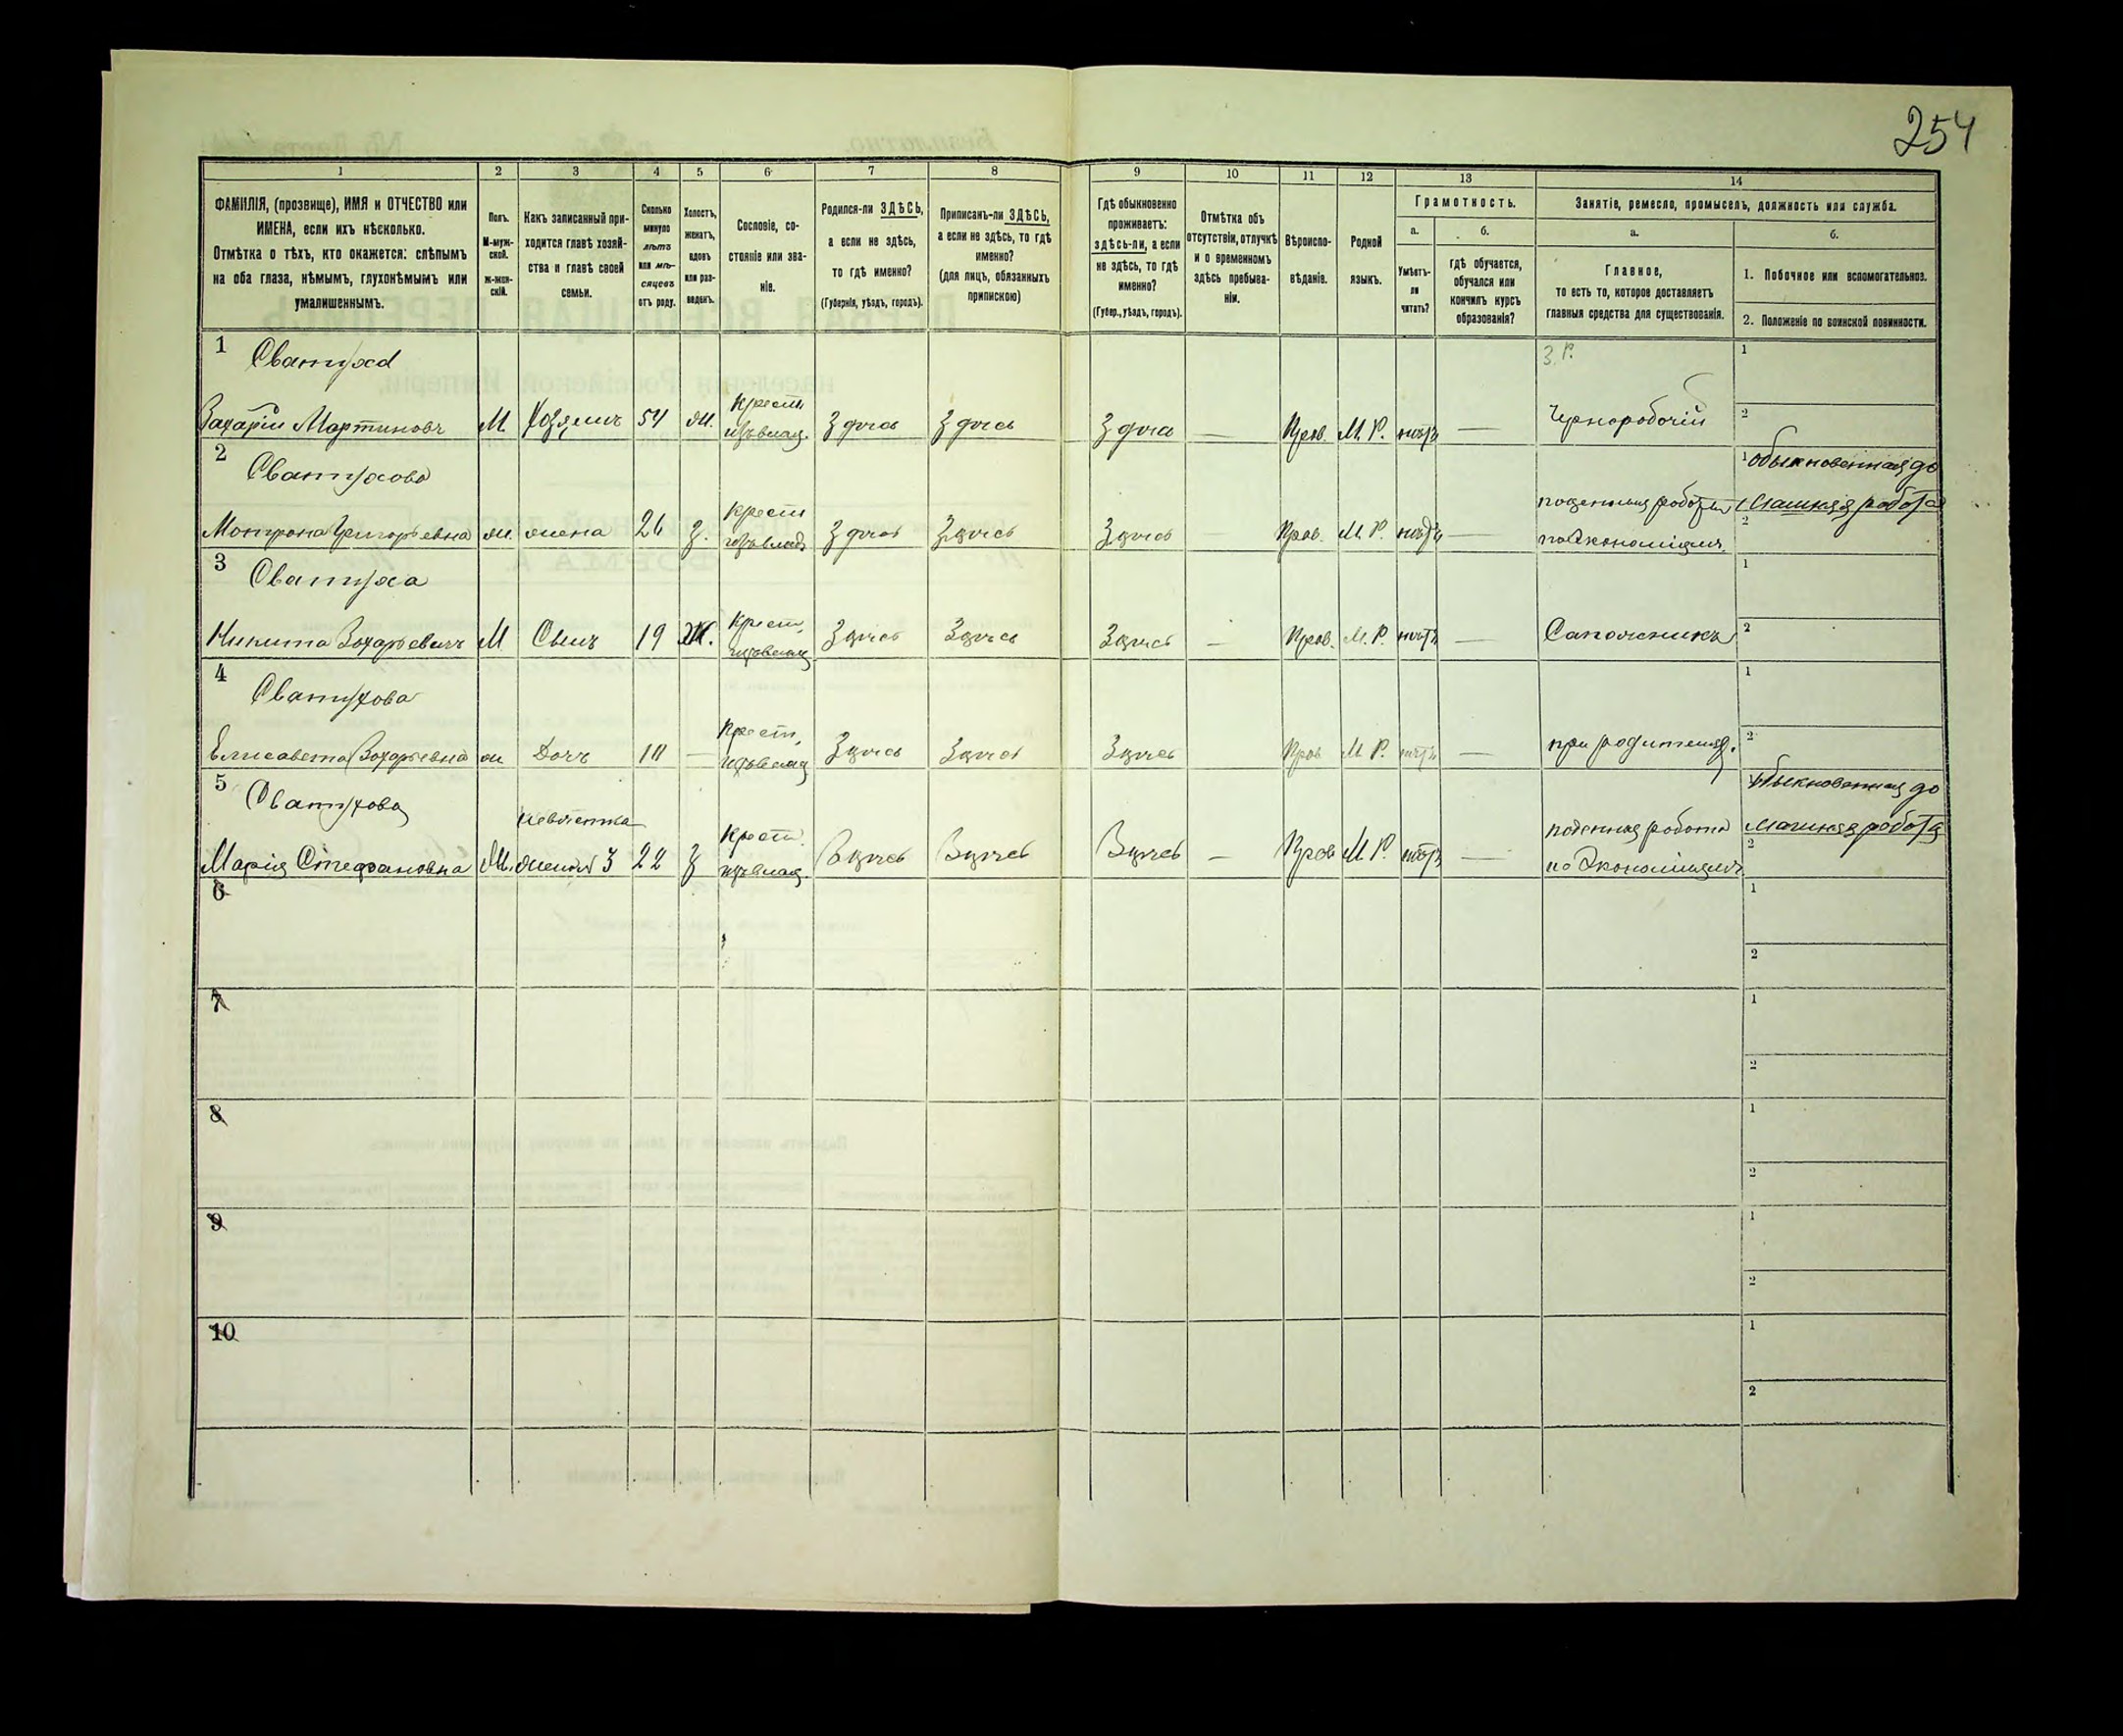 254
1 2 3 4 5 6 7 8 9 10 11 12 13 14
ФАМИЛІЯ, (прозвище), ИМЯ и ОТЧЕСТВО или
ИМЕНА, если ихъ нѣсколько.
Отмѣтка о тѣхъ, кто окажется: слѣпымъ
на оба глаза, нѣмымъ, глухонѣмымъ или
умалишеннымъ.
Полъ.
М-муж-
ской.
ж-жен-
скій.
Какъ записанный при-
ходится главѣ хозяй-
ства и главѣ своей
семьи.
Сколько
минуло
лѣтъ
или мѣ-
сяцевъ
отъ роду.
Холостъ,
женатъ,
вдовъ
или раз-
веденъ.
Сословіе, со-
стояніе или зва-
ніе.
Родился-ли ЗДѢСЬ,
а если не здѣсь,
то гдѣ именно?
(Губернія, уѣздъ, городъ).
Приписанъ-ли ЗДѢСЬ,
а если не здѣсь, то гдѣ
именно?
(для лицъ, обязанныхъ
припискою)
Гдѣ обыкновенно
проживаетъ:
здѣсь-ли, а если
не здѣсь, то гдѣ
именно?
(Губер., уѣздъ, городъ).
Отмѣтка объ
отсутствіи, отлучкѣ
и о временномъ
здѣсь пребыва-
ніи.
Вѣроиспо-
вѣданіе.
Родной
языкъ.
Грамотность.
а.
Умѣетъ-
ли
читать?
б.
гдѣ обучается,
обучался или
кончилъ курсъ
образованія?
Занятіе, ремесло, промыселъ, должность или служба.
а.
Главное,
то есть то, которое доставляетъ
главныя средства для существованія.
б.
1. Побочное или вспомогательное.
2. Положеніе по воинской повинности.
1 Сватуха З.Р. 1
Захарій Мартиновъ М. Хозяинъ 54 ж. Крестн. изъ влад. Здѣсь Здѣсь Здѣсь — Прав. М. Р. нѣтъ — Чернорабочій 2
2 Сватухова 1 обыкновенная до
Григорьевна ж. жена 26 з. Крестн. изъ влад. Здѣсь Здѣсь Здѣсь Прав. М. Р. нѣтъ — поденныя работы по Экономіямъ машняя работа 2
3 Сватуха 1
Никита Захарьевичъ М Сынъ 19 Ж. Крестн. изъ влад. Здѣсь Здѣсь Здѣсь — Прав. М. Р. нѣтъ — Сапожникъ 2
4 Сватухова 1
Елисавета Захарьевна ж Дочь — Крестн. изъ влад Здѣсь Здѣсь Здѣсь Прав М Р. нѣтъ — при родителяхъ 2
5 Сватухова 1 обыкновенная до
Марія Стефановна невѣстка жена № 3 22 з Крестн. изъ влад. Здѣсь Здѣсь Здѣсь — Прав М Р. нѣтъ — поденная работа по Экономіямъ машняя работа 2
6 1
2
7 1
2
8 1
2
9 1
2
10 1
2